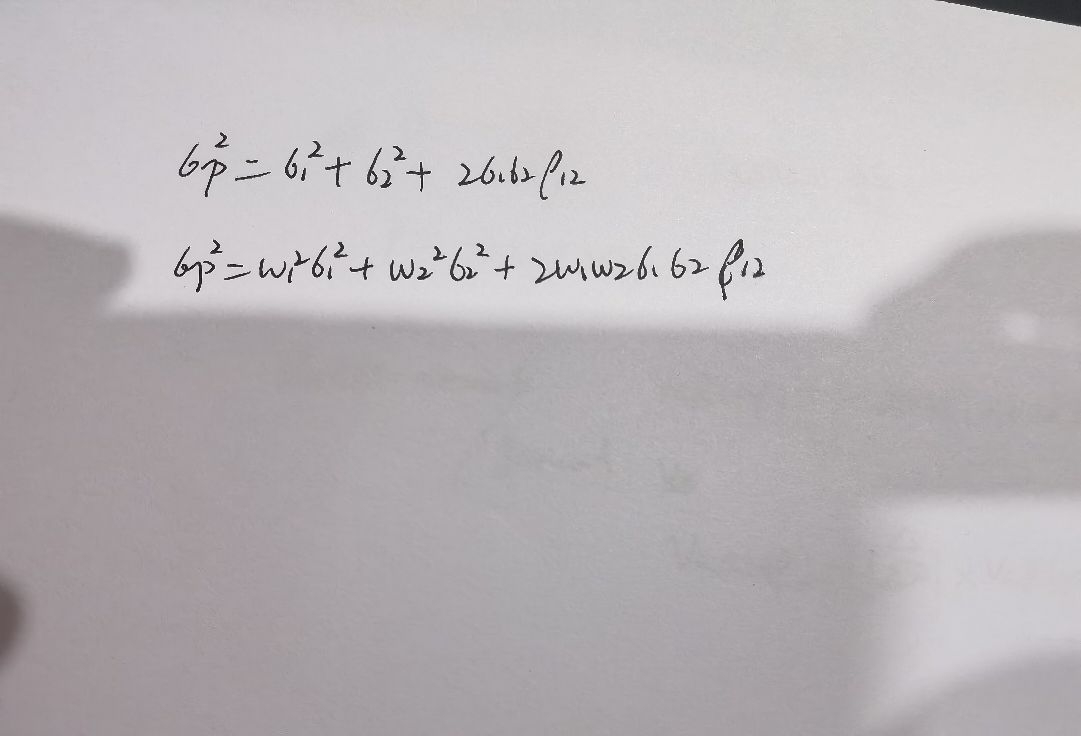 σp² = σ₁² + σ₂² + 2σ₁σ₂ρ₁₂
σp² = w₁²σ₁² + w₂²σ₂² + 2w₁w₂σ₁σ₂ρ₁₂